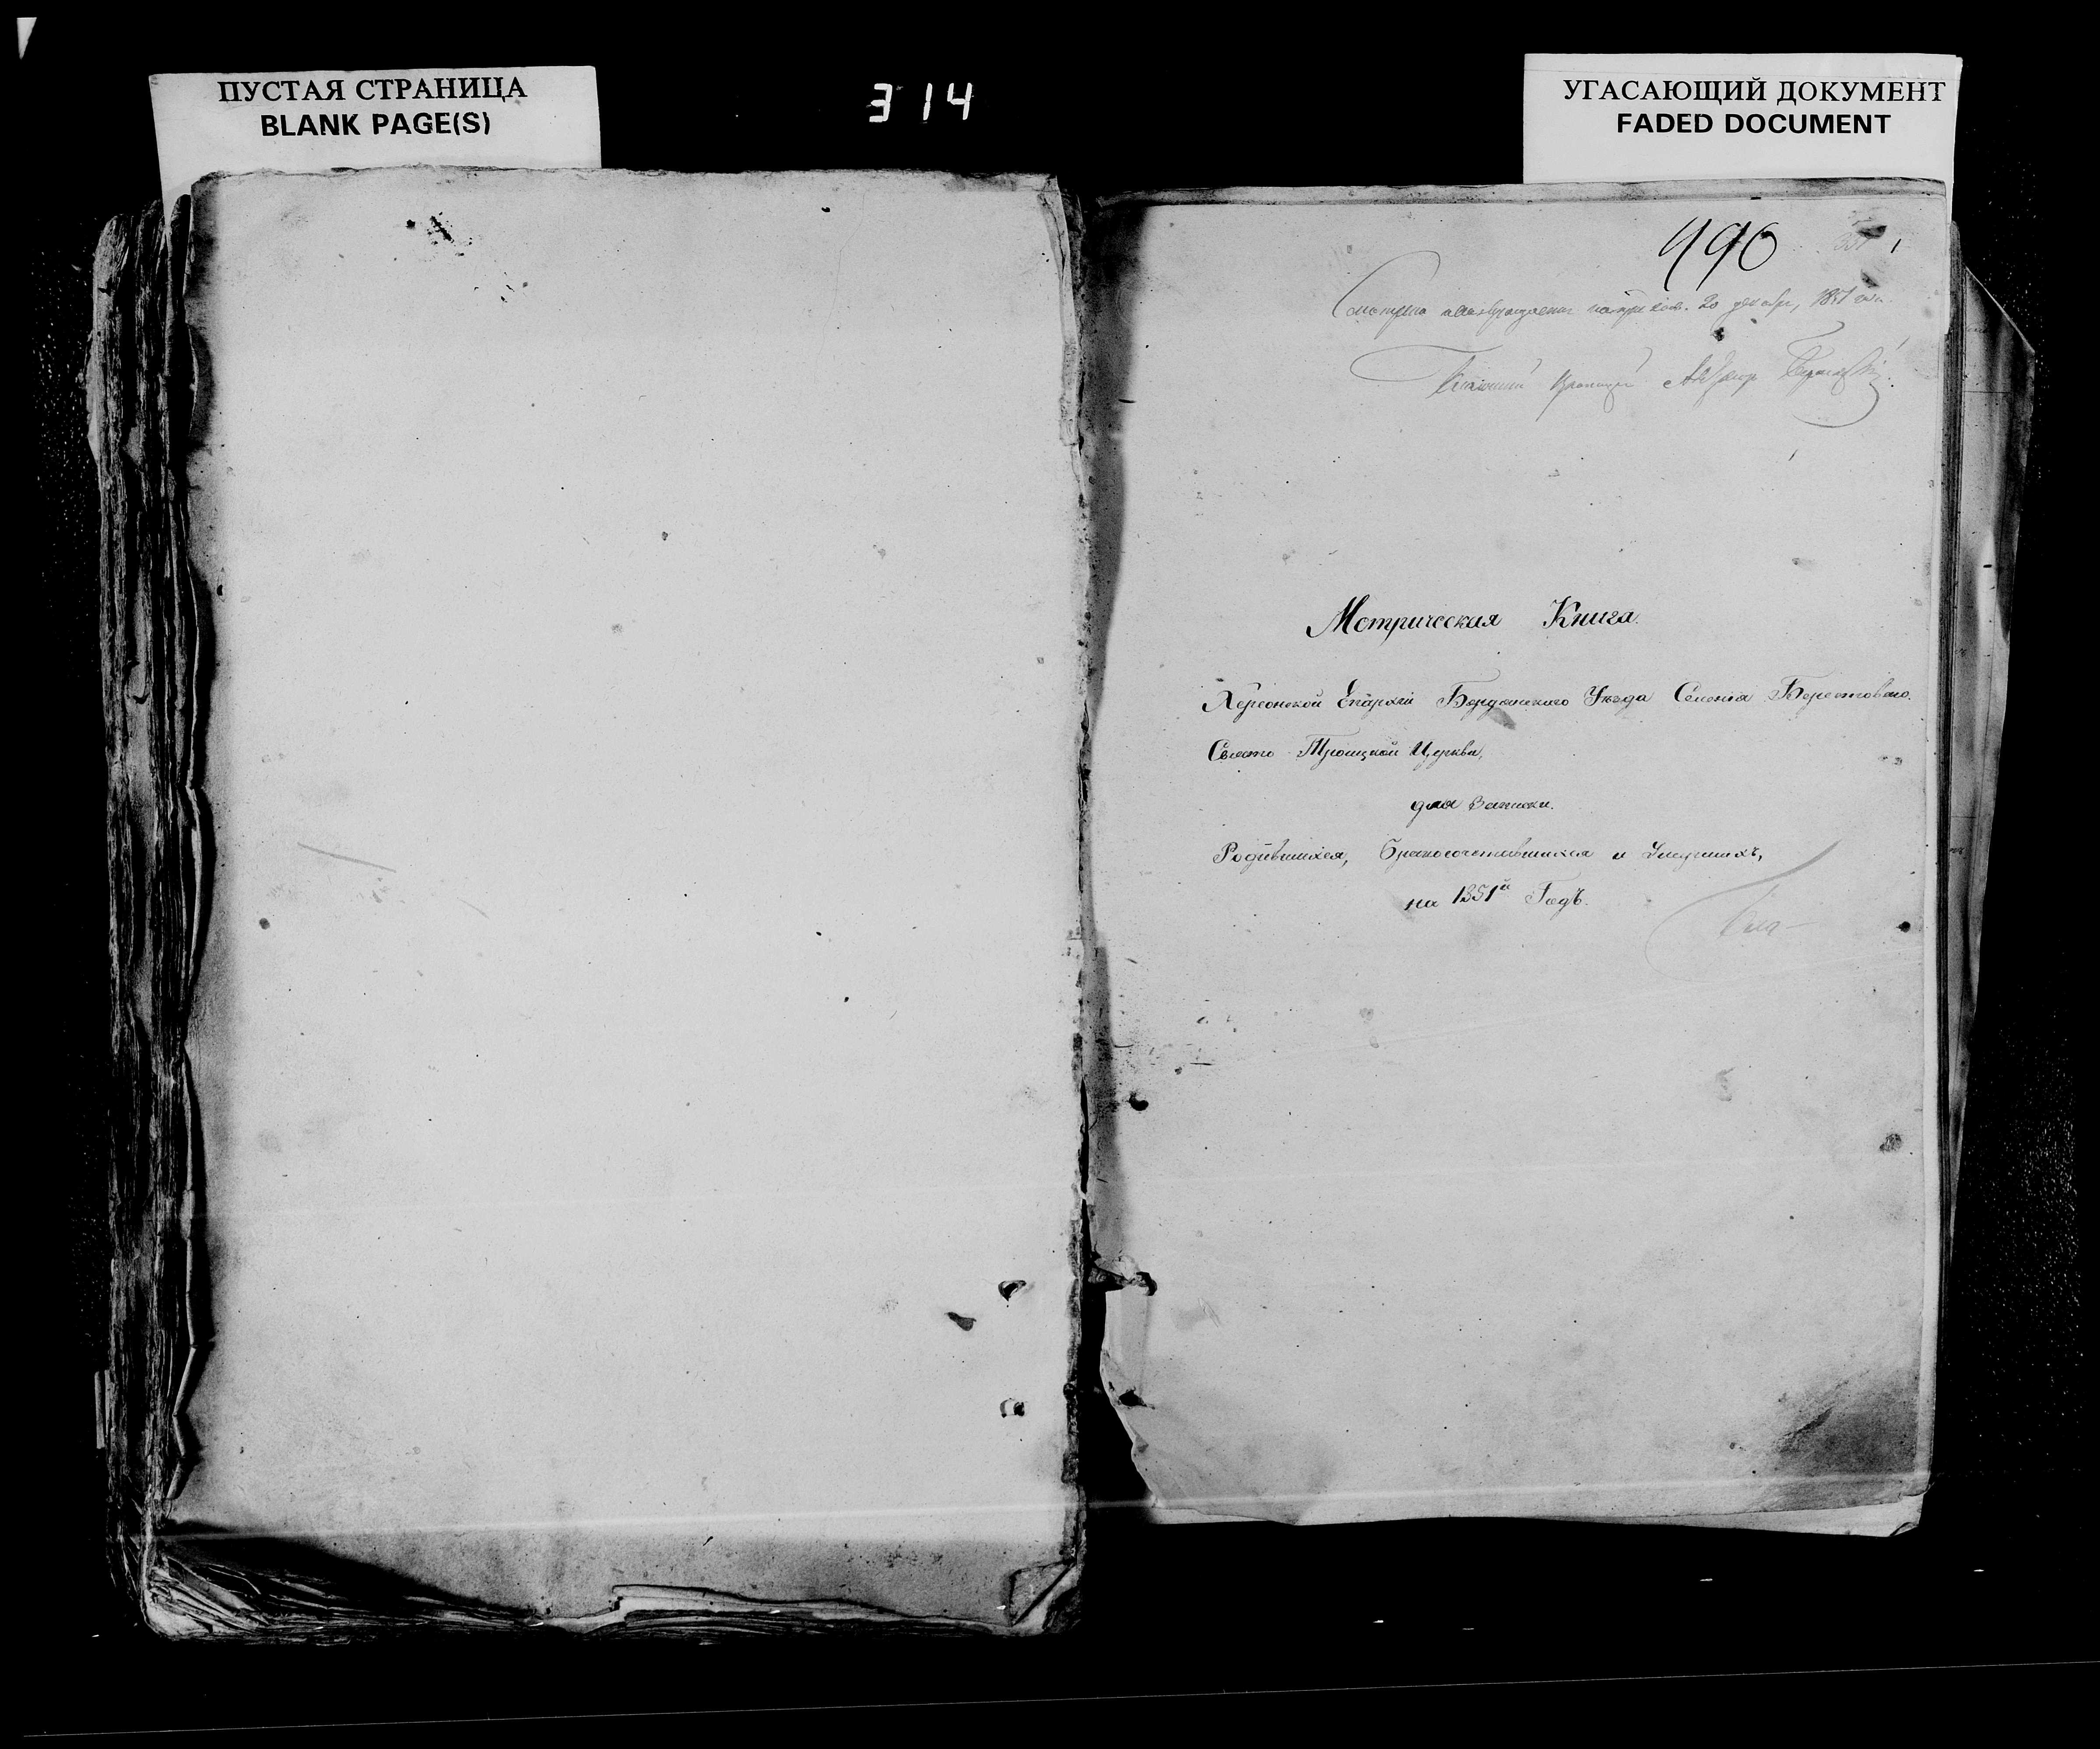 ПУСТАЯ СТРАНИЦА
BLANK PAGE(S)
314
УГАСАЮЩИЙ ДОКУМЕНТ
FADED DOCUMENT
990
20 декабря, 1851 года
Метрическая Книга.
Херсонской Епархіи Бердянскаго Уѣзда Селенія Берестоваго.
Свято Троицкой Церкви,
для Записки.
Родившихся, бракосочетавшихся и Умершихъ,
на 1851й Годъ.